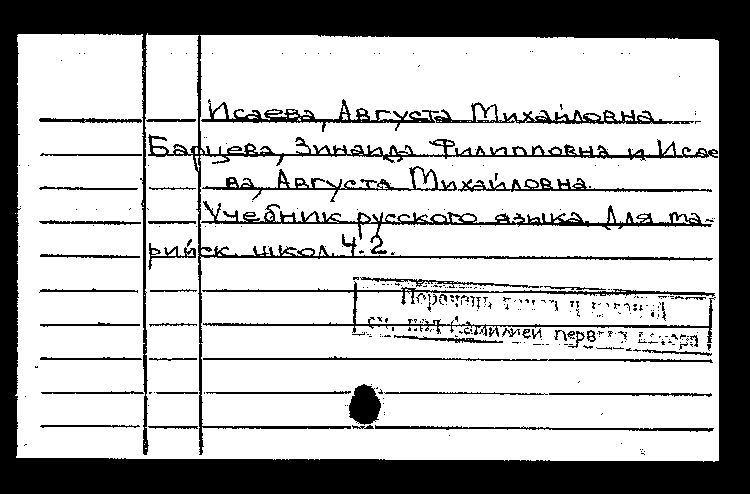 Исаева, Августа Михайловна.
Барцева, Зинаида Филипповна и Исае
ва, Августа Михайловна.
Учебник русского языка. Для ма-
рийск. школ. Ч. 2.
Перечень томов и изданий
см. под фамилией первого автора